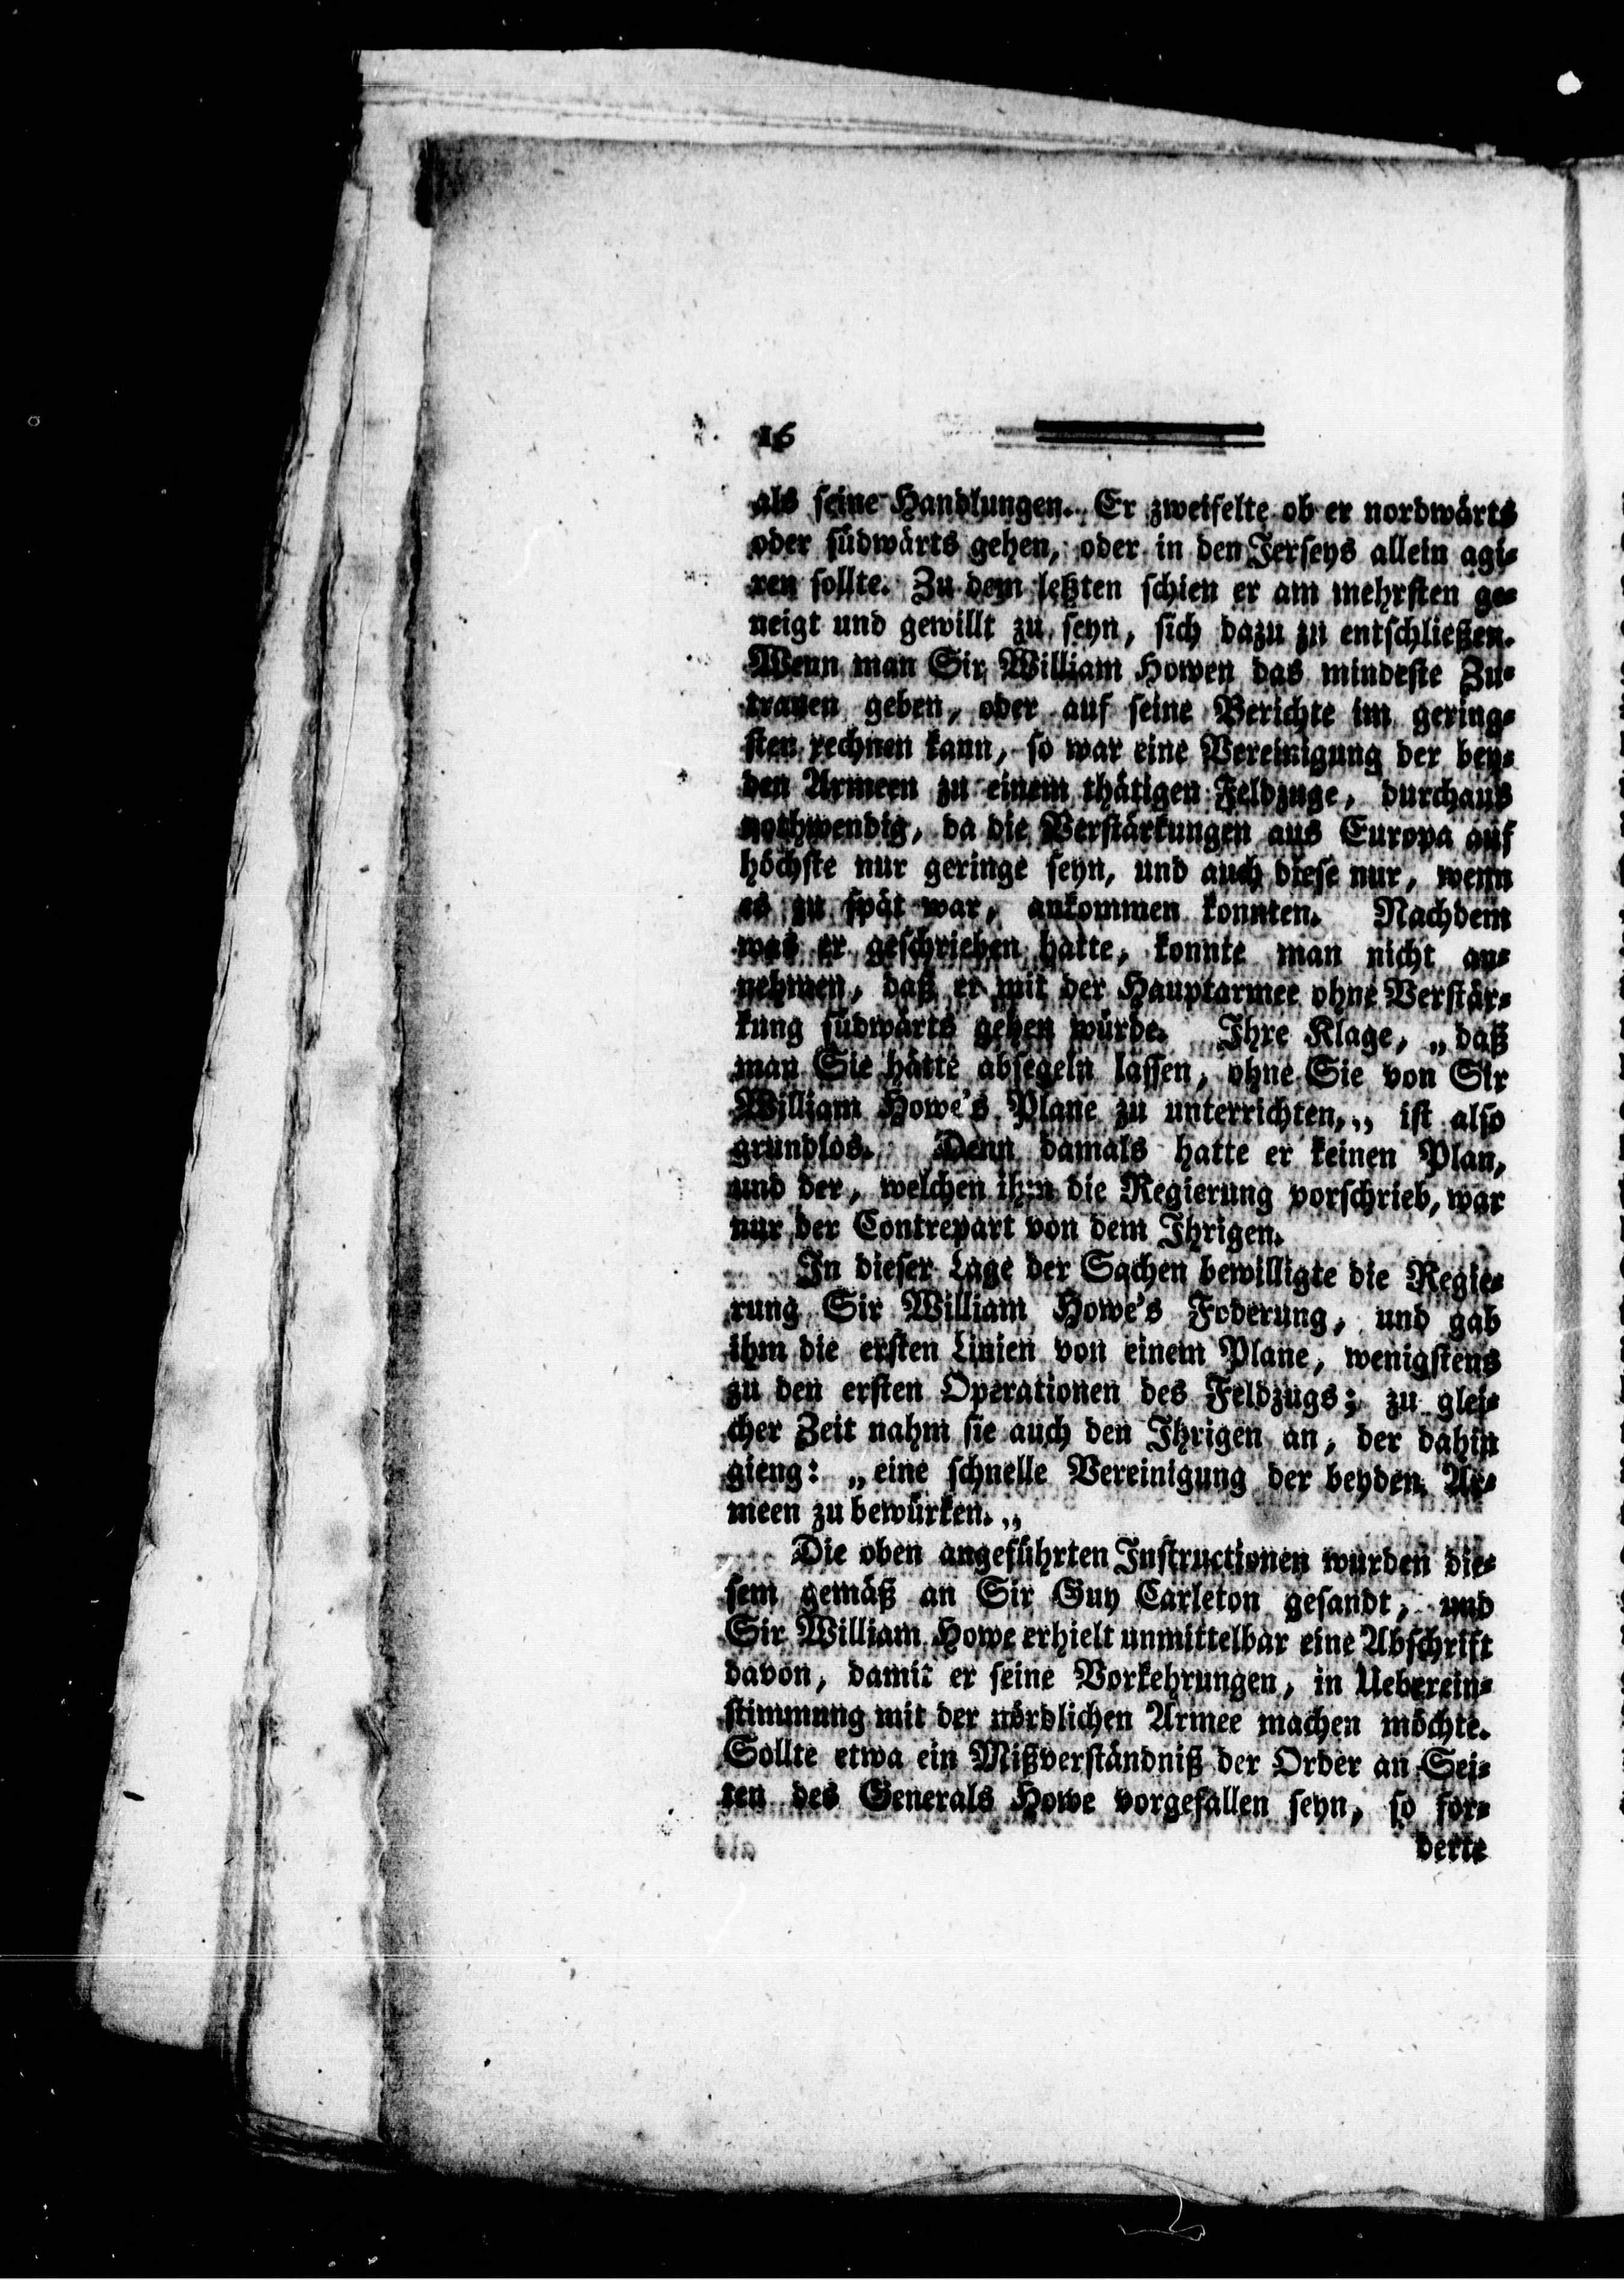 16
als seine Handlungen. Er zweifelte ob er nordwärts
oder südwärts gehen, oder in den Jerseys allein agi-
ren sollte. Zu dem letzten schien er am mehrsten ge-
neigt und gewillt zu seyn, sich dazu zu entschließen.
Wenn man Sir William Howen das mindeste Zu-
trauen geben, oder auf seine Berichte im gering-
sten rechnen kann, so war eine Vereinigung der bey-
den Armeen zu einem thätigen Feldzuge, durchaus
nothwendig, da die Verstärkungen aus Europa auf
höchste nur geringe seyn, und auch diese nur, wenn
es zu spät war, ankommen konnten. Nachdem
was er geschrieben hatte, konnte man nicht an-
nehmen, daß er mit der Hauptarmee ohne Verstär-
kung südwärts gehen würde. Ihre Klage, „daß
man Sie hätte absegeln lassen, ohne Sie von Sir
William Howe's Plane zu unterrichten,„ ist also
grundlos. Denn damals hatte er keinen Plan,
und der, welchen ihm die Regierung vorschrieb, war
nur der Contrepart von dem Ihrigen.
In dieser Lage der Sachen bewilligte die Regie-
rung Sir William Howe's Foderung, und gab
ihm die ersten Linien von einem Plane, wenigstens
zu den ersten Operationen des Feldzugs; zu glei-
cher Zeit nahm sie auch den Ihrigen an, der dahin
gieng: „eine schnelle Vereinigung der beyden Ar-
meen zu bewürken.„
Die oben angeführten Instructionen wurden die-
sem gemäß an Sir Guy Carleton gesandt, und
Sir William Howe erhielt unmittelbar eine Abschrift
davon, damit er seine Vorkehrungen, in Ueberein-
stimmung mit der nördlichen Armee machen möchte.
Sollte etwa ein Mißverständniß der Order an Sei-
ten des Generals Howe vorgefallen seyn, so for-
derte